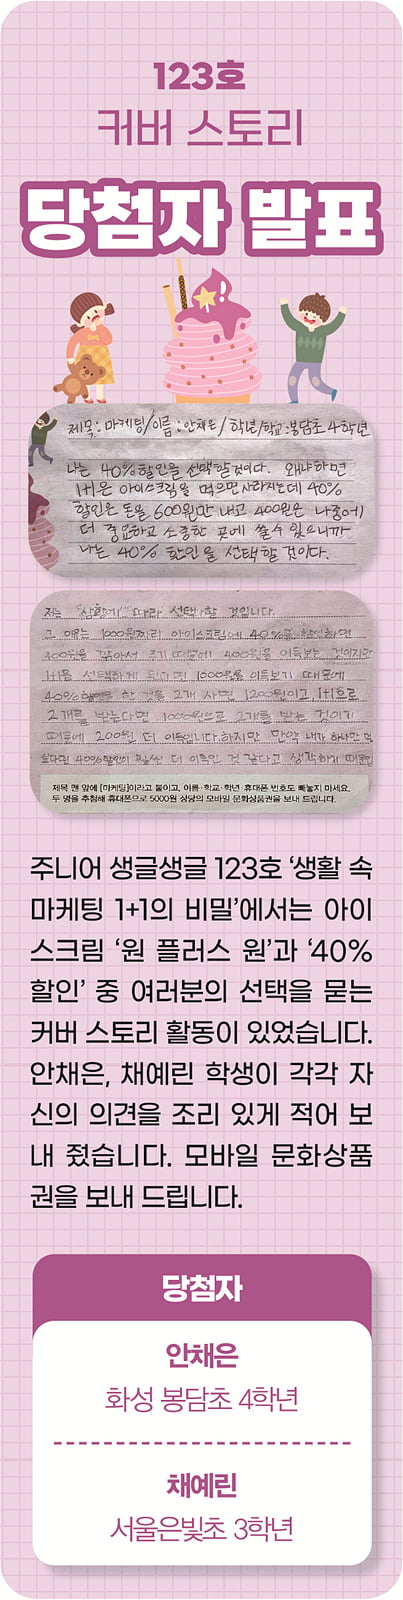 123호
커버 스토리
당첨자 발표
제목: 마케팅/이름: 안채은/ 학년/학교: 봉담초 4학년
나는 40% 할인을 선택할 것이다. 왜냐하면
1+1은 아이스크림을 먹으면 사라지는데 40%
할인은 돈을 600원만 내고 400원은 나중에
더 중요하고 소중한 곳에 쓸 수 있으니까
나는 40% 할인을 선택할 것이다.
저는 "상황에" 따라 선택할 것입니다.
그 이유는 1000원짜리 아이스크림에 40%를 할인하면
400원을 깎아서 주기 때문에 400원을 이득보는 것이지만
1+1을 선택하게 된다면 1000원을 이득보기 때문에
40% 한 것을 2개 사면 1200원이고, 1+1으로
2개를 받는다면 1000원으로 2개를 받는 것이기
때문에 200원 더 이득입니다. 하지만 만약 내가 하나만 먹
싶다면 40% 할인이 더 이득인 것 같다고 생각하기 때문입
제목 맨 앞에 [마케팅]이라고 붙이고, 이름·학교·학년·휴대폰 번호도 빼놓지 마세요.
두 명을 추첨해 휴대폰으로 5000원 상당의 모바일 문화상품권을 보내 드립니다.
주니어 생글생글 123호 '생활 속
마케팅 1+1의 비밀'에서는 아이
스크림 '원 플러스 원'과 '40%
할인' 중 여러분의 선택을 묻는
커버 스토리 활동이 있었습니다.
안채은, 채예린 학생이 각각 자
신의 의견을 조리 있게 적어 보
내 줬습니다. 모바일 문화상품
권을 보내 드립니다.
당첨자
안채은
화성 봉담초 4학년
채예린
서울은빛초 3학년